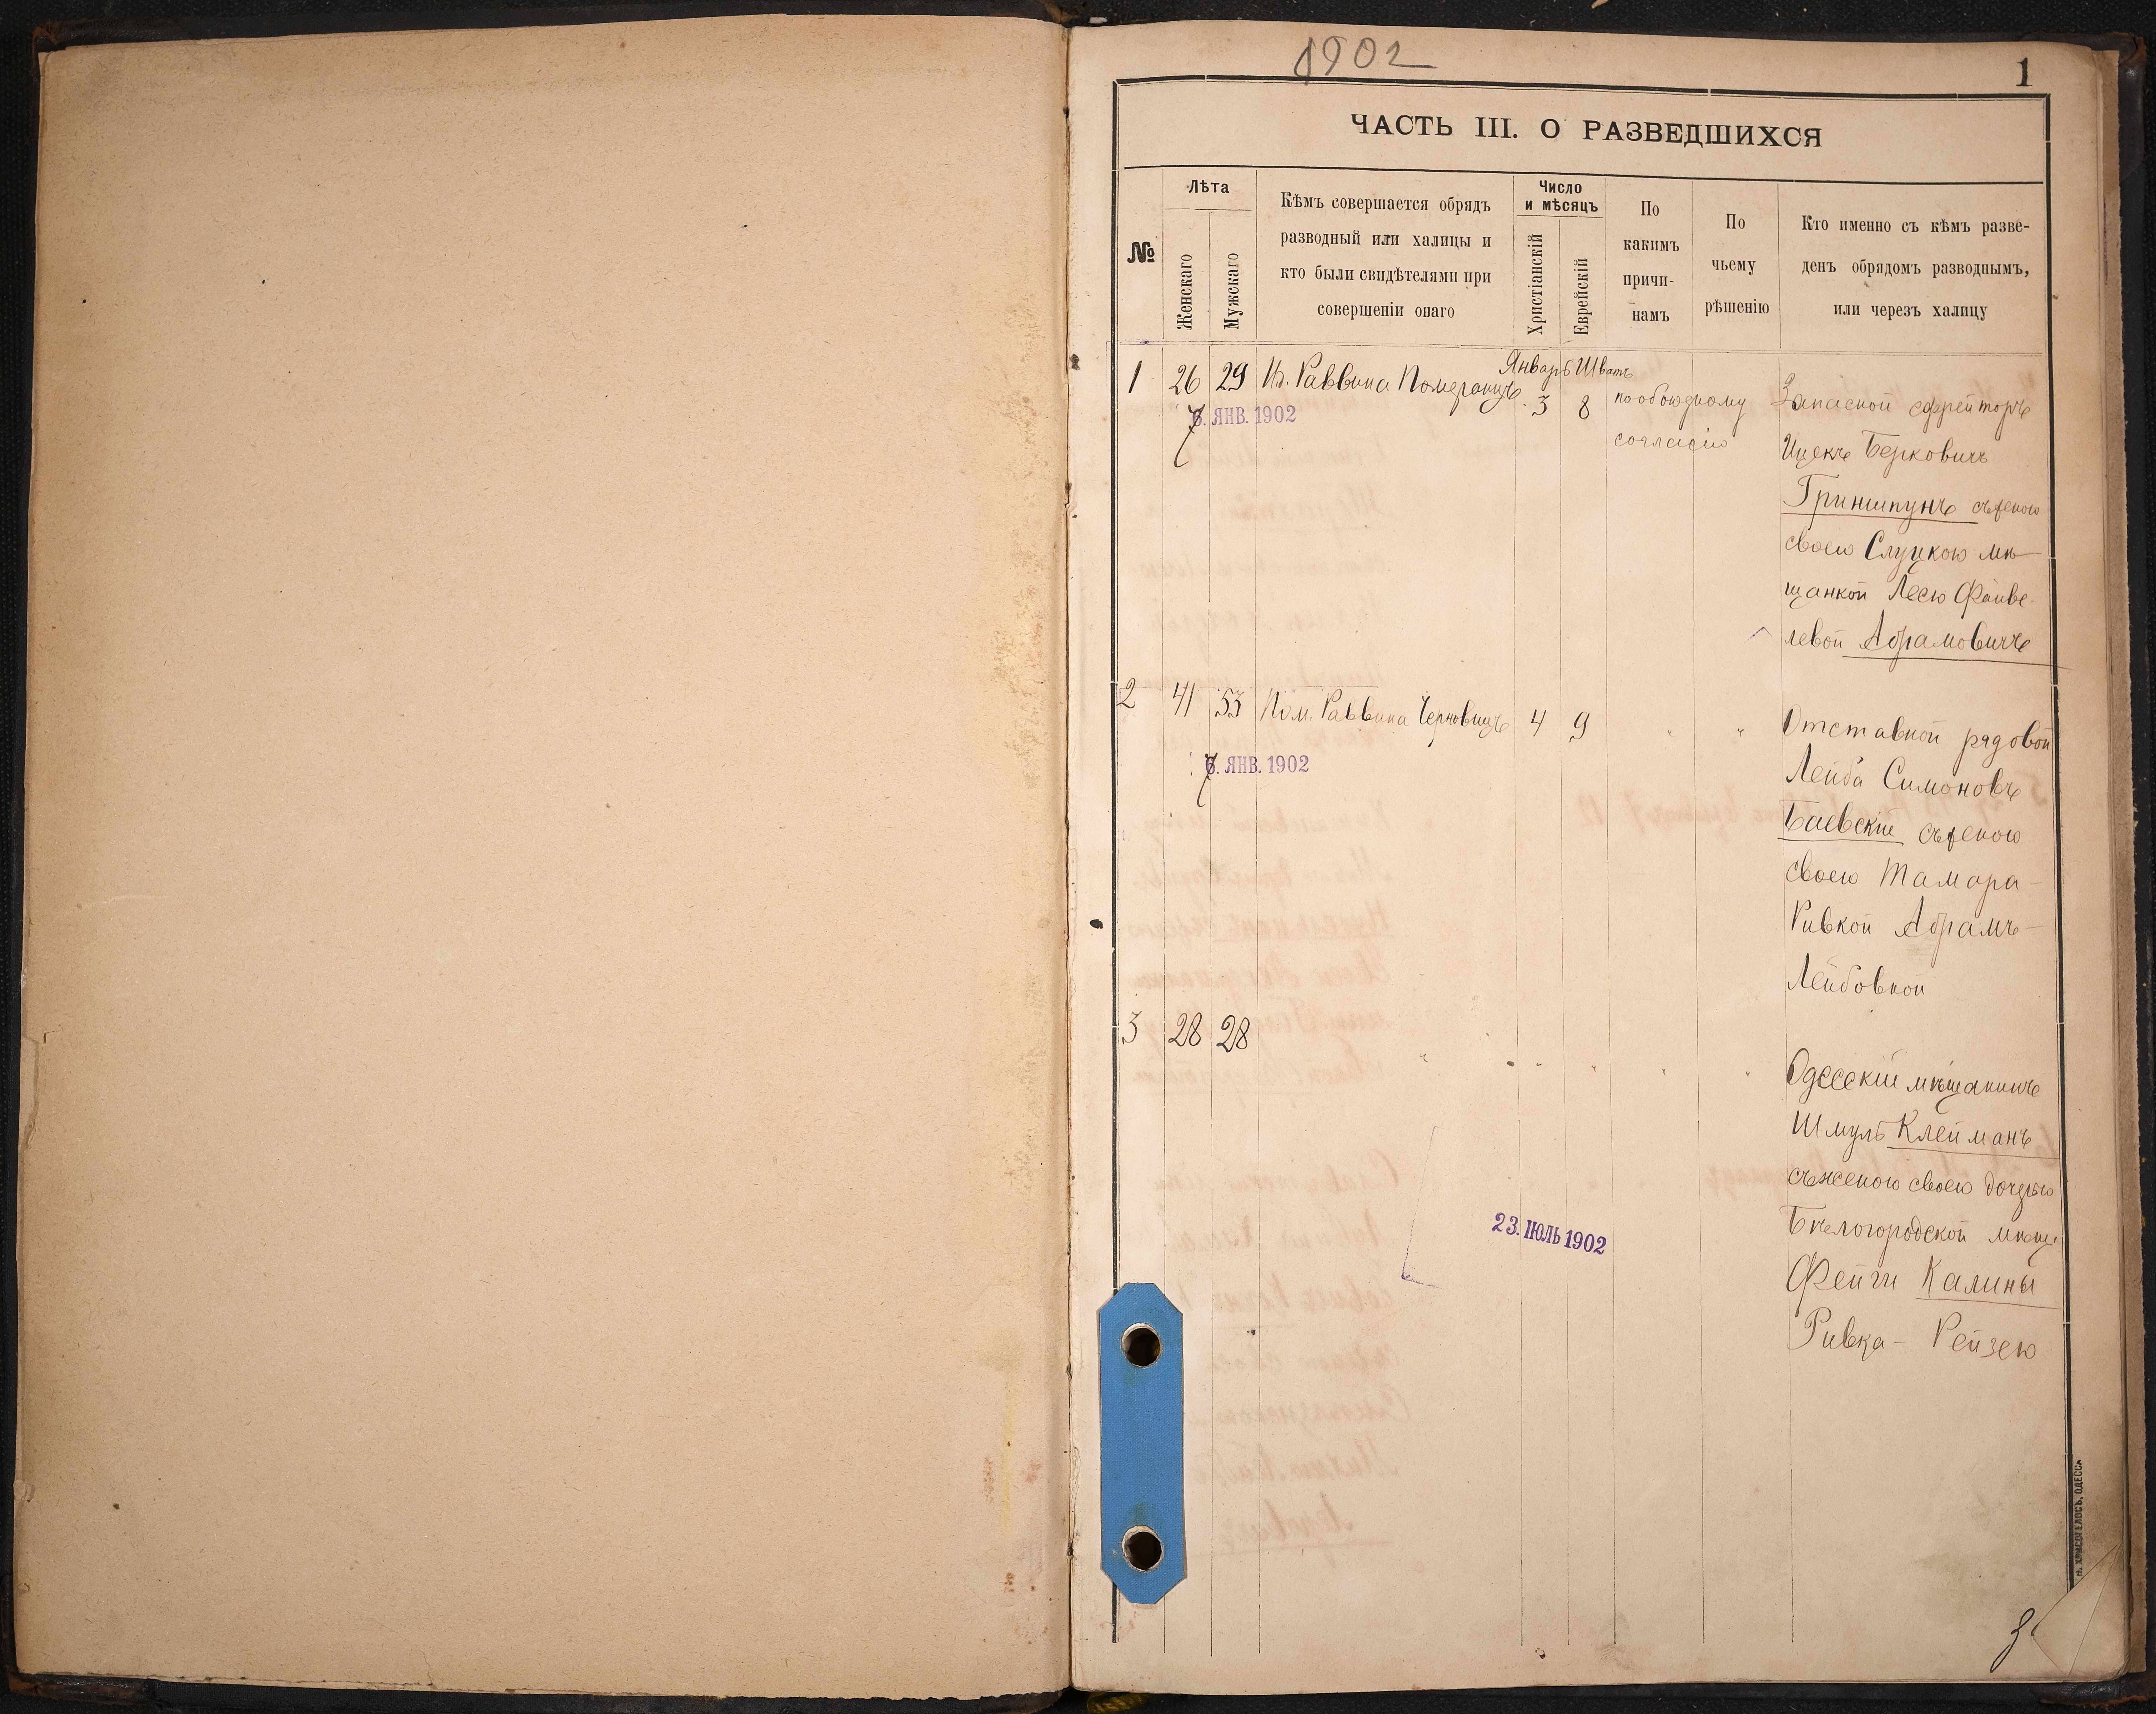 1902
1
ЧАСТЬ III. О РАЗВЕДШИХСЯ
№
Лѣта
Женскаго
Мужскаго
Кѣмъ совершается обрядъ
разводный или халицы и
кто были свидѣтелями при
совершеніи онаго
Число
и мѣсяцъ
Христіанскій
Еврейскій
По
какимъ
причи-
намъ
По
чьему
рѣшенію
Кто именно съ кѣмъ разве-
денъ обрядомъ разводнымъ,
или черезъ халицу
Январь Шватъ
1 26 29 Раввина Померанцъ 3 8
6. ЯНВ. 1902
7
по обоюдному
согласію
Запасной ефрейторъ
Ицекъ Берковичъ
Гриншпунъ съ женою
своею Слуцкою мѣ-
щанкой Лесю Файве-
левой Абрамовичъ
2 41 53 Пом. Раввина Черновицъ 4 9 " "
6. ЯНВ. 1902
7
Отставной рядовой
Лейба Симоновъ
Баевскій съ женою
своею Тамара-
Ривкой Абрамъ-
Лейбовной
3 28 28 " " " " " "
Одесскій мѣщанинъ
Шмуль Клейманъ
съ женою своею дочерью
Бѣлогородской мѣщ.
Фейги Калины
Ривка- Рейзею
23. ІЮЛЬ 1902
ХРИСОГЕЛОСЪ, ОДЕССА